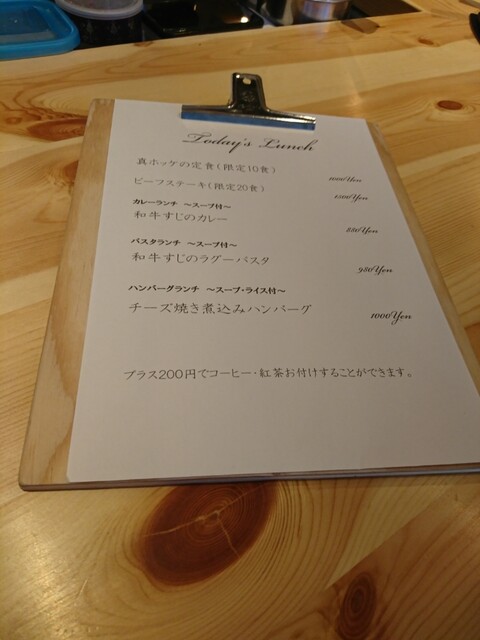 Today's Lunch
真ホッケの定食(限定10食) 1000Yen
ビーフステーキ(限定20食) 1500Yen
カレーランチ ～スープ付～
和牛すじのカレー 880Yen
パスタランチ ～スープ付～
和牛すじのラグーパスタ 980Yen
ハンバーグランチ ～スープ・ライス付～
チーズ焼き煮込みハンバーグ 1000Yen
プラス200円でコーヒー・紅茶お付けすることができます。